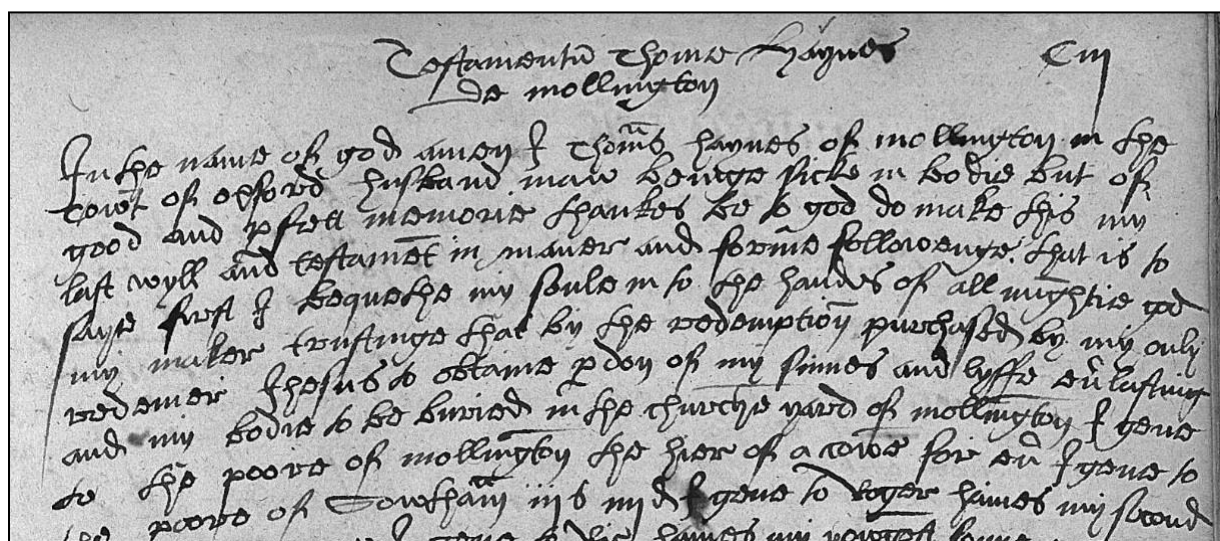 Testamentū Thome Haynes Ciij
de mollington
In the name of god amen I Thom̄s haynes of mollington in the
Cowt of oxford husband man beinge sicke in bodie but of
good and pfect memorie thankes be to god do make this my
last wyll and testamēt in maner and forme followenge. that is to
saye first I bequethe my soule in to the handes of all mightie god
my maker trustinge that by the redemptiō purchased by my only
redemer Ihesus to obtaine pdon of my sinnes and lyffe eūlasting
and my bodie to be buried in the churche yard of mollington I geve
to the poore of mollington the hier of a cowe for eū I geve to
the poore of iijs iiijd I geve to Roger haines my second
I geve to haines my yongest sonne